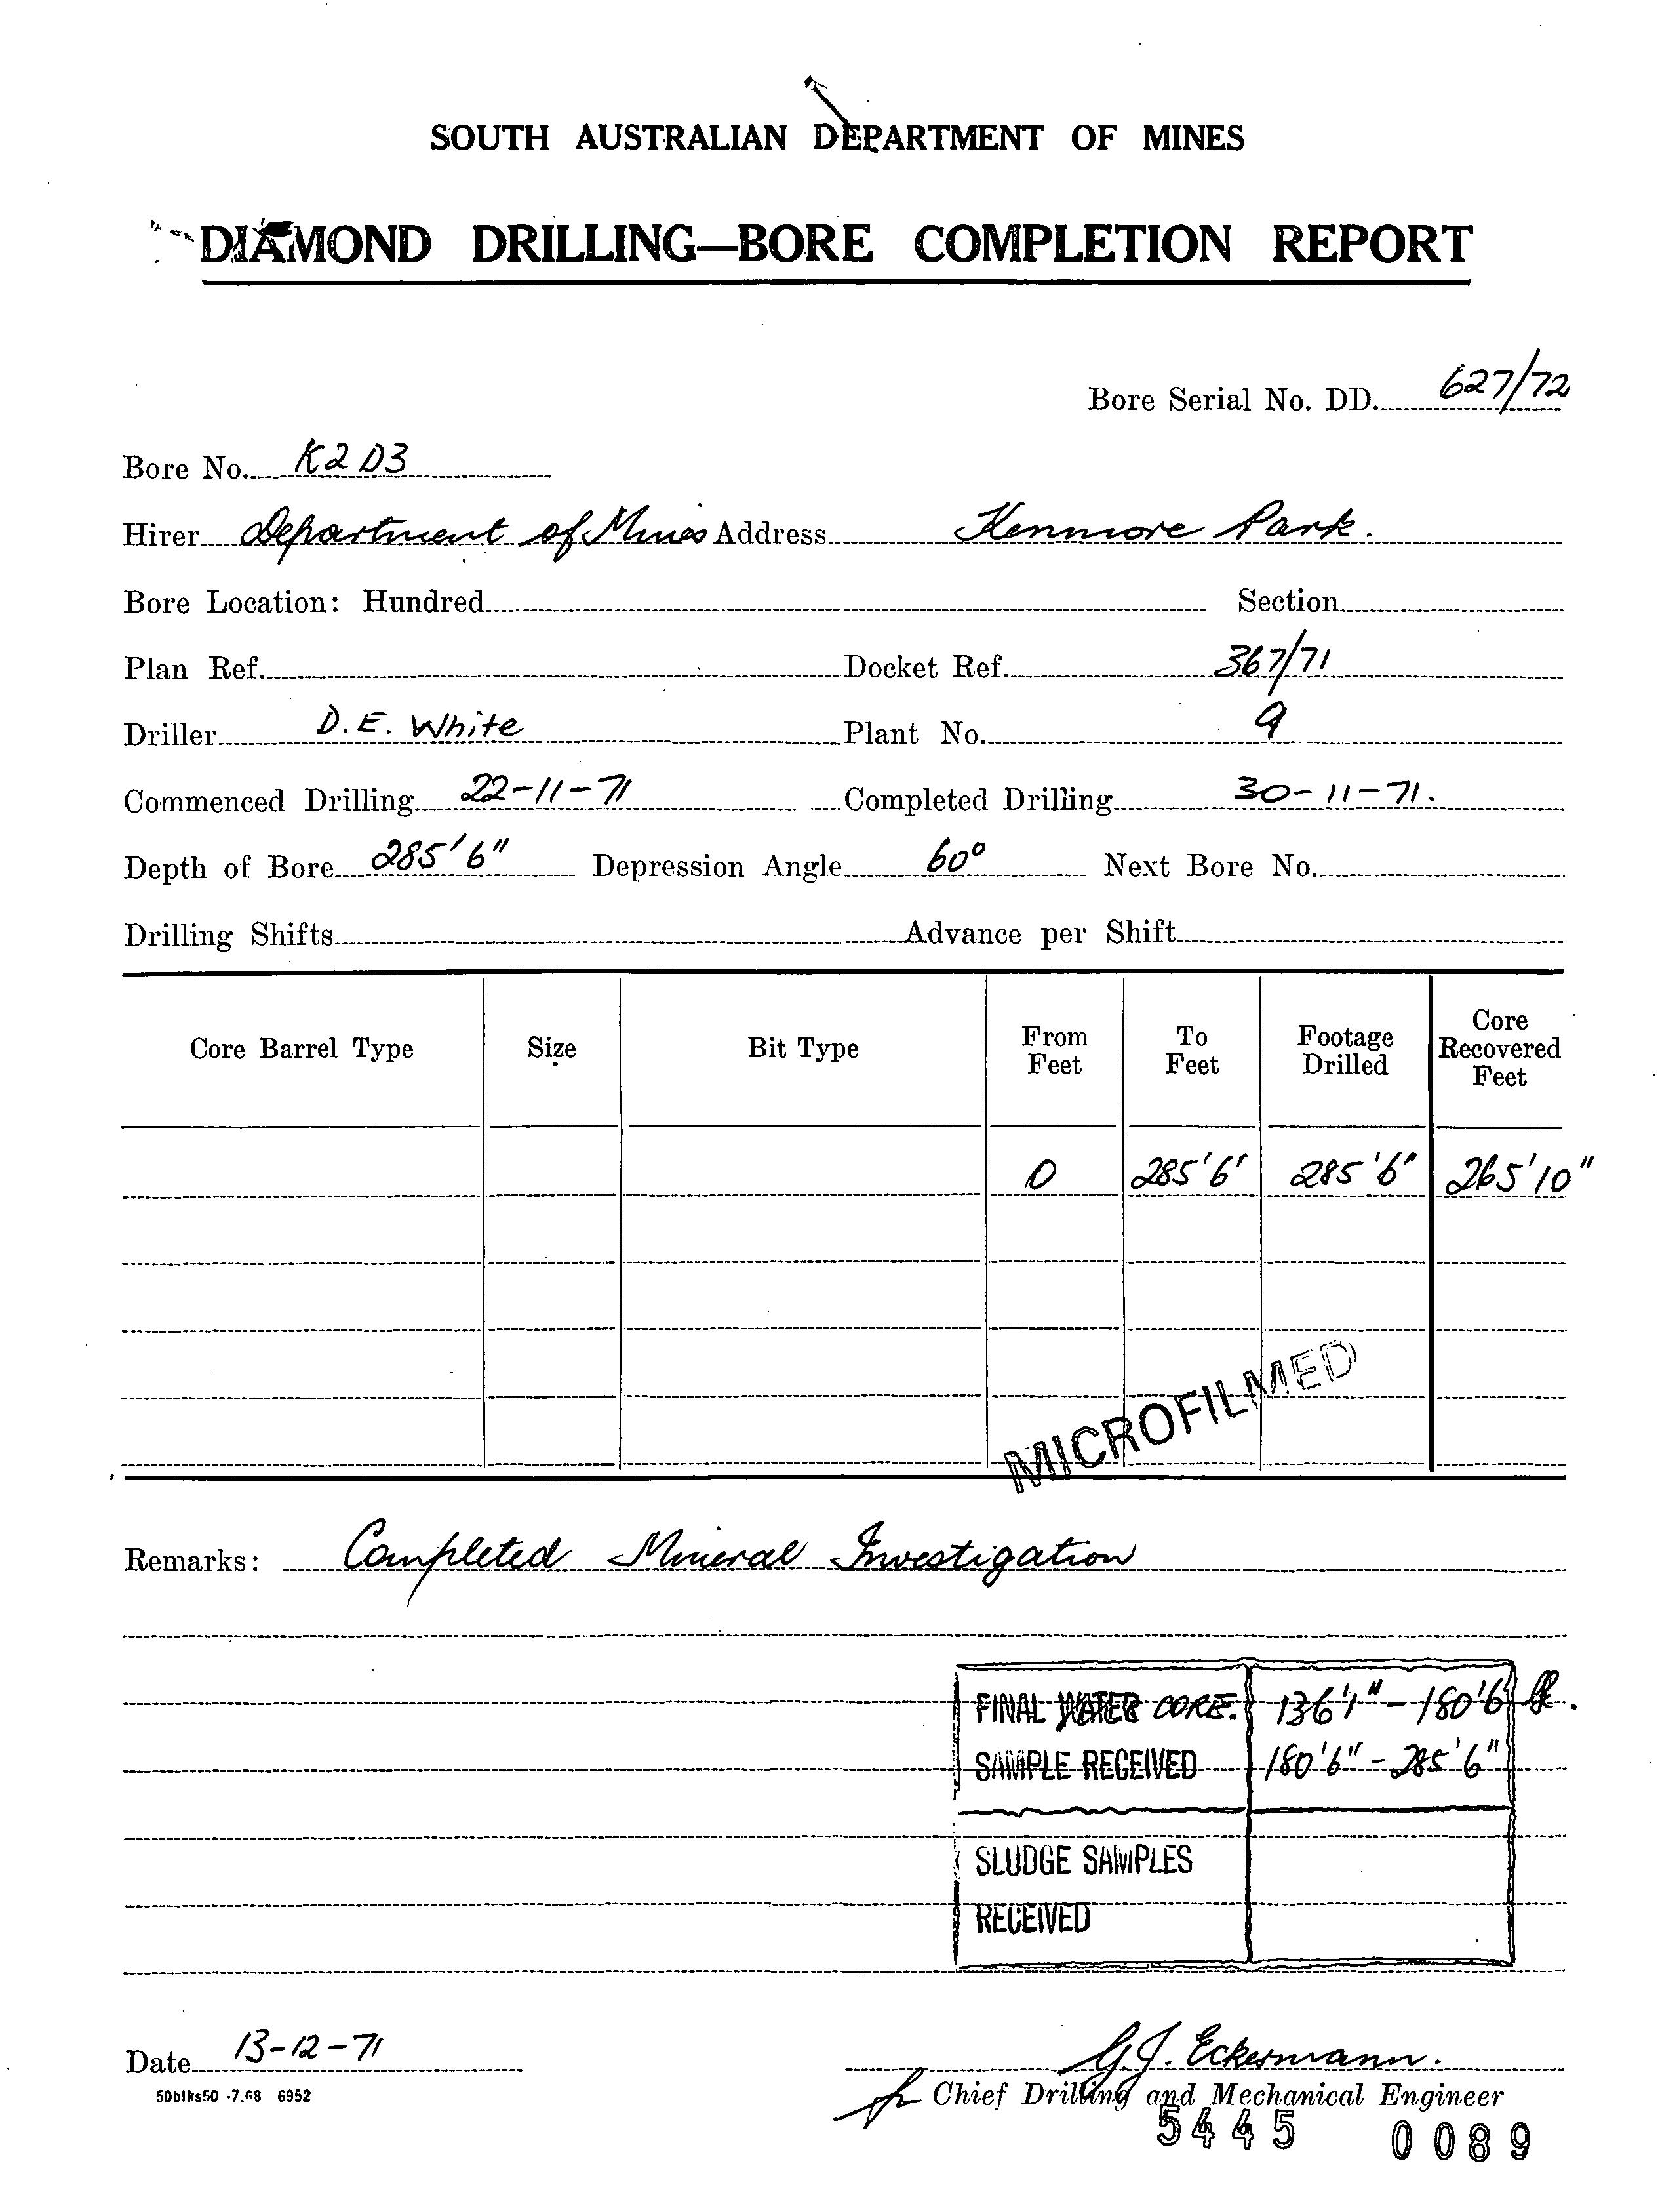 SOUTH AUSTRALIAN DEPARTMENT OF MINES
DIAMOND DRILLING—BORE COMPLETION REPORT
Bore Serial No. DD. 627/72
Bore No. K2 D3
Hirer Department of Mines Address Kenmore Park.
Bore Location: Hundred Section
Plan Ref. Docket Ref. 367/71
Driller D. E. White Plant No. 9
Commenced Drilling 22-11-71 Completed Drilling 30-11-71.
Depth of Bore 285'6" Depression Angle 60° Next Bore No.
Drilling Shifts Advance per Shift
Core Barrel Type Size Bit Type From Feet To Feet Footage Drilled Core Recovered Feet
0 285'6' 285'6" 265'10"
MICROFILMED
Remarks: Completed Mineral Investigation
FINAL WATER CORE. 136'1" - 180'6
SAMPLE RECEIVED 180'6" - 285'6"
SLUDGE SAMPLES
RECEIVED
Date 13-12-71 G.J. Eckermann.
50blks50 -7.68 6952 for Chief Drilling and Mechanical Engineer
5445 0089